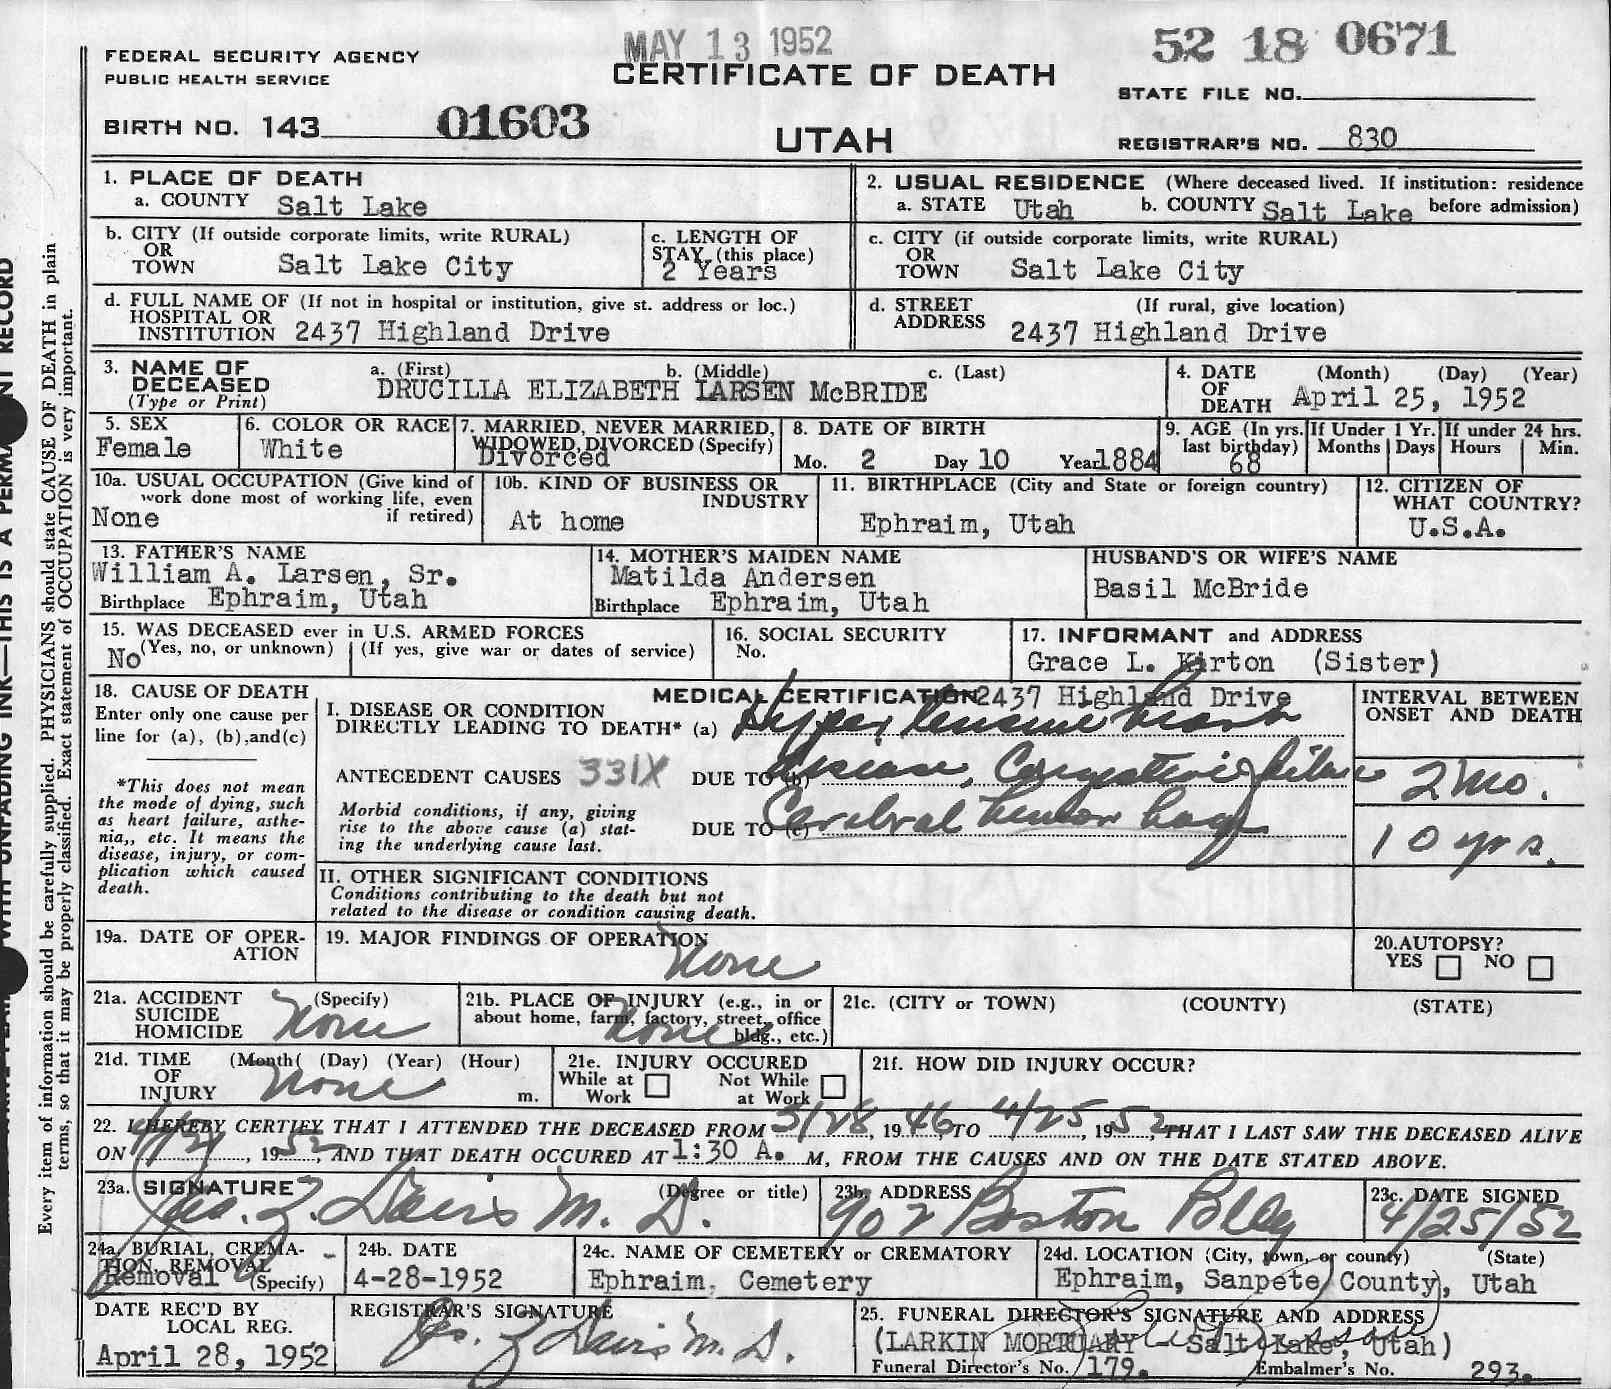 MAY 13 1952
52 18 0671
FEDERAL SECURITY AGENCY
PUBLIC HEALTH SERVICE
CERTIFICATE OF DEATH
STATE FILE NO.
BIRTH NO. 143 01603
UTAH
REGISTRAR'S NO. 830
1. PLACE OF DEATH
a. COUNTY Salt Lake
2. USUAL RESIDENCE (Where deceased lived. If institution: residence
a. STATE Utah b. COUNTY Salt Lake before admission)
b. CITY (If outside corporate limits, write RURAL)
OR
TOWN Salt Lake City
c. LENGTH OF
STAY (this place)
2 Years
c. CITY (if outside corporate limits, write RURAL)
OR
TOWN Salt Lake City
d. FULL NAME OF (If not in hospital or institution, give st. address or loc.)
HOSPITAL OR
INSTITUTION 2437 Highland Drive
d. STREET (If rural, give location)
ADDRESS 2437 Highland Drive
3. NAME OF DECEASED
(Type or Print)
a. (First) b. (Middle) c. (Last)
DRUCILLA ELIZABETH LARSEN McBRIDE
4. DATE (Month) (Day) (Year)
OF
DEATH April 25, 1952
5. SEX
Female
6. COLOR OR RACE
White
7. MARRIED, NEVER MARRIED,
WIDOWED, DIVORCED (Specify)
Divorced
8. DATE OF BIRTH
Mo. 2 Day 10 Year 1884
9. AGE (In yrs. last birthday)
68
If Under 1 Yr.
Months Days
If under 24 hrs.
Hours Min.
10a. USUAL OCCUPATION (Give kind of
work done most of working life, even
if retired)
None
10b. KIND OF BUSINESS OR
INDUSTRY
At home
11. BIRTHPLACE (City and State or foreign country)
Ephraim, Utah
12. CITIZEN OF
WHAT COUNTRY?
U.S.A.
13. FATHER'S NAME
William A. Larsen, Sr.
Birthplace Ephraim, Utah
14. MOTHER'S MAIDEN NAME
Matilda Andersen
Birthplace Ephraim, Utah
HUSBAND'S OR WIFE'S NAME
Basil McBride
15. WAS DECEASED ever in U.S. ARMED FORCES
(Yes, no, or unknown) (If yes, give war or dates of service)
No
16. SOCIAL SECURITY
No.
17. INFORMANT and ADDRESS
Grace L. Kirton (Sister)
2437 Highland Drive
18. CAUSE OF DEATH
Enter only one cause per
line for (a), (b),and(c)
*This does not mean
the mode of dying, such
as heart failure, asthe-
nia,, etc. It means the
disease, injury, or com-
plication which caused
death.
MEDICAL CERTIFICATION
I. DISEASE OR CONDITION
DIRECTLY LEADING TO DEATH* (a) Hypertensive heart
ANTECEDENT CAUSES 331X DUE TO (b) disease, Congestive failure
Morbid conditions, if any, giving
rise to the above cause (a) stat-
ing the underlying cause last.
DUE TO (c) Cerebral hemorrhage
INTERVAL BETWEEN
ONSET AND DEATH
2 mo.
10 yrs.
II. OTHER SIGNIFICANT CONDITIONS
Conditions contributing to the death but not
related to the disease or condition causing death.
19a. DATE OF OPER-
ATION
19. MAJOR FINDINGS OF OPERATION
None
20.AUTOPSY?
YES NO
21a. ACCIDENT (Specify)
SUICIDE
HOMICIDE None
21b. PLACE OF INJURY (e.g., in or
about home, farm, factory, street, office
bldg., etc.)
None
21c. (CITY or TOWN) (COUNTY) (STATE)
21d. TIME (Month( (Day) (Year) (Hour)
OF
INJURY None m.
21e. INJURY OCCURED
While at Work Not While at Work
21f. HOW DID INJURY OCCUR?
22. I HEREBY CERTIFY THAT I ATTENDED THE DECEASED FROM 3/28, 1946, TO 4/25, 1952, THAT I LAST SAW THE DECEASED ALIVE
ON , 1952, AND THAT DEATH OCCURED AT 1:30 A. M, FROM THE CAUSES AND ON THE DATE STATED ABOVE.
23a. SIGNATURE (Degree or title)
Jas. Z. Davis M. D.
23b. ADDRESS
902 Boston Bldg
23c. DATE SIGNED
4/25/52
24a. BURIAL, CREMA-
TION, REMOVAL
Removal (Specify)
24b. DATE
4-28-1952
24c. NAME OF CEMETERY or CREMATORY
Ephraim, Cemetery
24d. LOCATION (City, town, or county) (State)
Ephraim, Sanpete County, Utah
DATE REC'D BY
LOCAL REG.
April 28, 1952
REGISTRAR'S SIGNATURE
Jas. Z Davis M. D.
25. FUNERAL DIRECTOR'S SIGNATURE AND ADDRESS
(LARKIN MORTUARY Salt Lake, Utah)
Funeral Director's No. 179. Embalmer's No. 293.
WITH UNFADING INK—THIS IS A PERMA NT RECORD
Every item of information should be carefully supplied. PHYSICIANS should state CAUSE OF DEATH in plain
terms, so that it may be properly classified. Exact statement of OCCUPATION is very important.